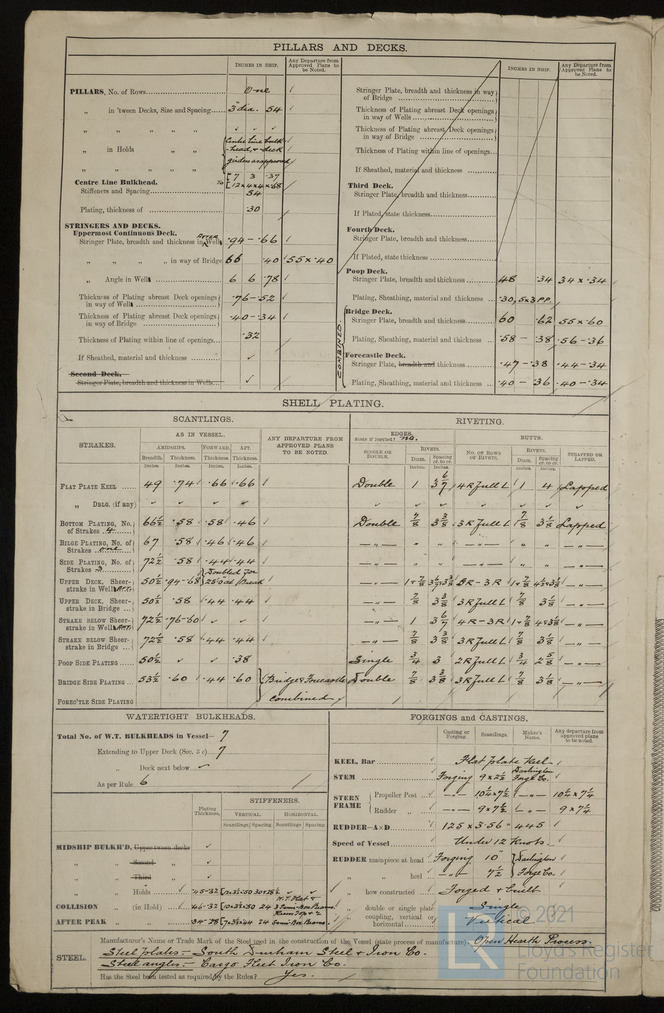 PILLARS AND DECKS.
INCHES IN SHIP.
Any Departure from Approved Plans to be Noted.
PILLARS, No. of Rows One
„ in 'tween Decks, Size and Spacing 3" dia. 54
„ „ „ „ „
„ in Holds „ „ Centre line bulk-head & deck
„ „ „ girders as approved
Centre Line Bulkhead.
Stiffeners and Spacing
7 3 .37
12 x 4 x 4 x .68
54
Plating, thickness of .30
STRINGERS AND DECKS.
Uppermost Continuous Deck.
Stringer Plate, breadth and thickness in Wells .94 - .66
„ „ „ „ in way of Bridge 66 .40 55 x .40
„ Angle in Wells 6 6 .78
Thickness of Plating abreast Deck openings in way of Wells .76-.52
Thickness of Plating abreast Deck openings in way of Bridge .40-.34
Thickness of Plating within line of openings .32
If Sheathed, material and thickness ✓
Second Deck.
Stringer Plate, breadth and thickness in Wells ✓
INCHES IN SHIP.
Any Departure from Approved Plans to be Noted.
Stringer Plate, breadth and thickness in way of Bridge
Thickness of Plating abreast Deck openings in way of Wells
Thickness of Plating abreast Deck openings in way of Bridge
Thickness of Plating within line of openings
If Sheathed, material and thickness
Third Deck.
Stringer Plate, breadth and thickness
If Plated, state thickness
Fourth Deck.
Stringer Plate, breadth and thickness
If Plated, state thickness
Poop Deck.
Stringer Plate, breadth and thickness 48 .34 34 x .34
Plating, Sheathing, material and thickness .30, 5x3 PP
COMBINED.
Bridge Deck.
Stringer Plate, breadth and thickness 60 .62 55 x .60
Plating, Sheathing, material and thickness .58 - .38 .56-.36
Forecastle Deck.
Stringer Plate, breadth and thickness .47-.38 .44-.34
Plating, Sheathing, material and thickness .40-.36 .40-.34
SHELL PLATING.
SCANTLINGS.
RIVETING.
STRAKES.
AS IN VESSEL.
ANY DEPARTURE FROM APPROVED PLANS TO BE NOTED.
AMIDSHIPS. FORWARD. AFT.
Breadth. Thickness. Thickness. Thickness.
Inches. Inches. Inches. Inches.
EDGES.
State if joggled? no.
SINGLE OR DOUBLE.
RIVETS.
Diam. Spacing cr. to cr.
BUTTS.
NO. OF ROWS OF RIVETS.
RIVETS.
Diam. Spacing cr. to cr.
STRAPPED OR LAPPED.
FLAT PLATE KEEL 49 .74 .66 .66 Double 1 3 6/7 4R full L 1 4 Lapped
„ DBLG. (if any)
BOTTOM PLATING, No. of Strakes 4 66½ .58 .58 .46 Double 7/8 3 3/8 3R full L 7/8 3 1/8 Lapped
BILGE PLATING, No. of Strakes one 67 .58 .46 .46
SIDE PLATING, No. of Strakes 3 72½ .58 .44 .44
UPPER DECK, Sheer-strake in Wells 50½ .94-.68 Doubled for
UPPER DECK, Sheer-strake in Bridge 50½ .58 .44 .44 7/8 3 3/8 3R full L 7/8 3 1/8
STRAKE BELOW Sheer-strake in Wells 72½ .76-.60 1 3 6/7 4R-3R
STRAKE BELOW Sheer-strake in Bridge 72½ .58 .44 .44 7/8 3 3/8 3R full L 7/8 3 1/8
POOP SIDE PLATING 50½ .38 Single 3/4 3 2R full L 3/4 2 5/8
BRIDGE SIDE PLATING 53½ .60 .44 .60 Bridge & Forecastle Double 7/8 3 3/8 3R full L 7/8 3 1/8
FOREC'TLE SIDE PLATING combined
WATERTIGHT BULKHEADS.
Total No. of W.T. BULKHEADS in Vessel— 7
Extending to Upper Deck (Sec. 3 c) 7
„ Deck next below ✓
As per Rule 6
Plating Thickness.
STIFFENERS.
VERTICAL. HORIZONTAL.
Scantlings Spacing Scantlings Spacing
MIDSHIP BULKH'D, Upper tween decks
„ „ Second „
„ „ Third „
„ „ Holds .45-.32
COLLISION „ (in Hold) .46-.32
AFTER PEAK „ „ .34-.28
FORGINGS and CASTINGS.
Casting or Forging. Scantlings. Maker's Name. Any departure from approved plans to be noted.
KEEL, Bar Flat plate keel
STEM Forging 9 x 2½ Darlington Forge Co.
STERN FRAME
Propeller Post 10½ x 7½ 10½ x 7¼
Rudder „ 9 x 7½ 9 x 7¼
RUDDER—A x D 125 x 3.56 = 445
Speed of Vessel Under 12 knots.
RUDDER mainpiece at head Forging 10" Darlington
„ „ heel 7½ Forge Co.
„ how constructed Forged & built
„ double or single plate Single
„ coupling, vertical or horizontal Vertical
STEEL.
Manufacturer's Name or Trade Mark of the Steel used in the construction of the Vessel (state process of manufacture). Open Hearth Process.
Steel plates:— South Durham Steel & Iron Co.
Steel angles:— Cargo Fleet Iron Co.
Has the Steel been tested as required by the Rules? Yes.
© 2021
Lloyd's Register
Foundation